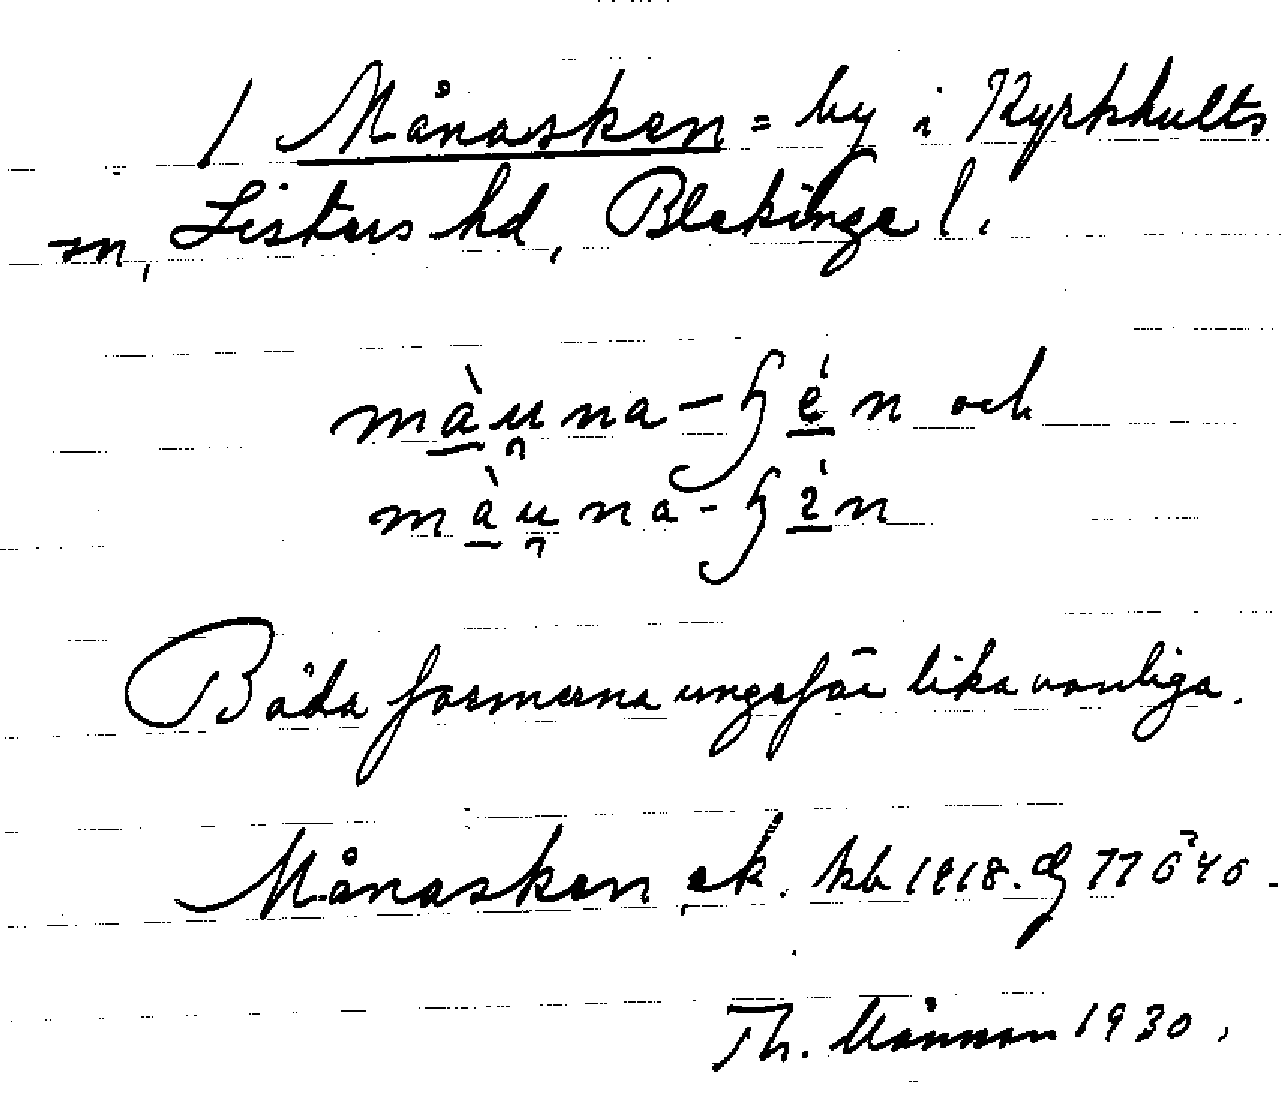 / Månasken = by i Kyrkhults
sn, Listers hd, Blekinge l.
màu̯na-ɧén och
màu̯na-ɧín
Båda formerna ungefär lika vanliga.
Månasken ek. kb 1918.
Th. 1930.